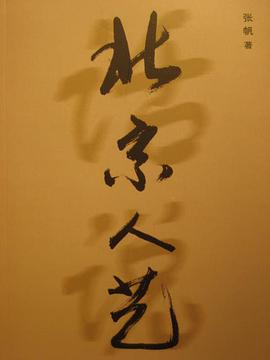 北京人艺
张帆 著